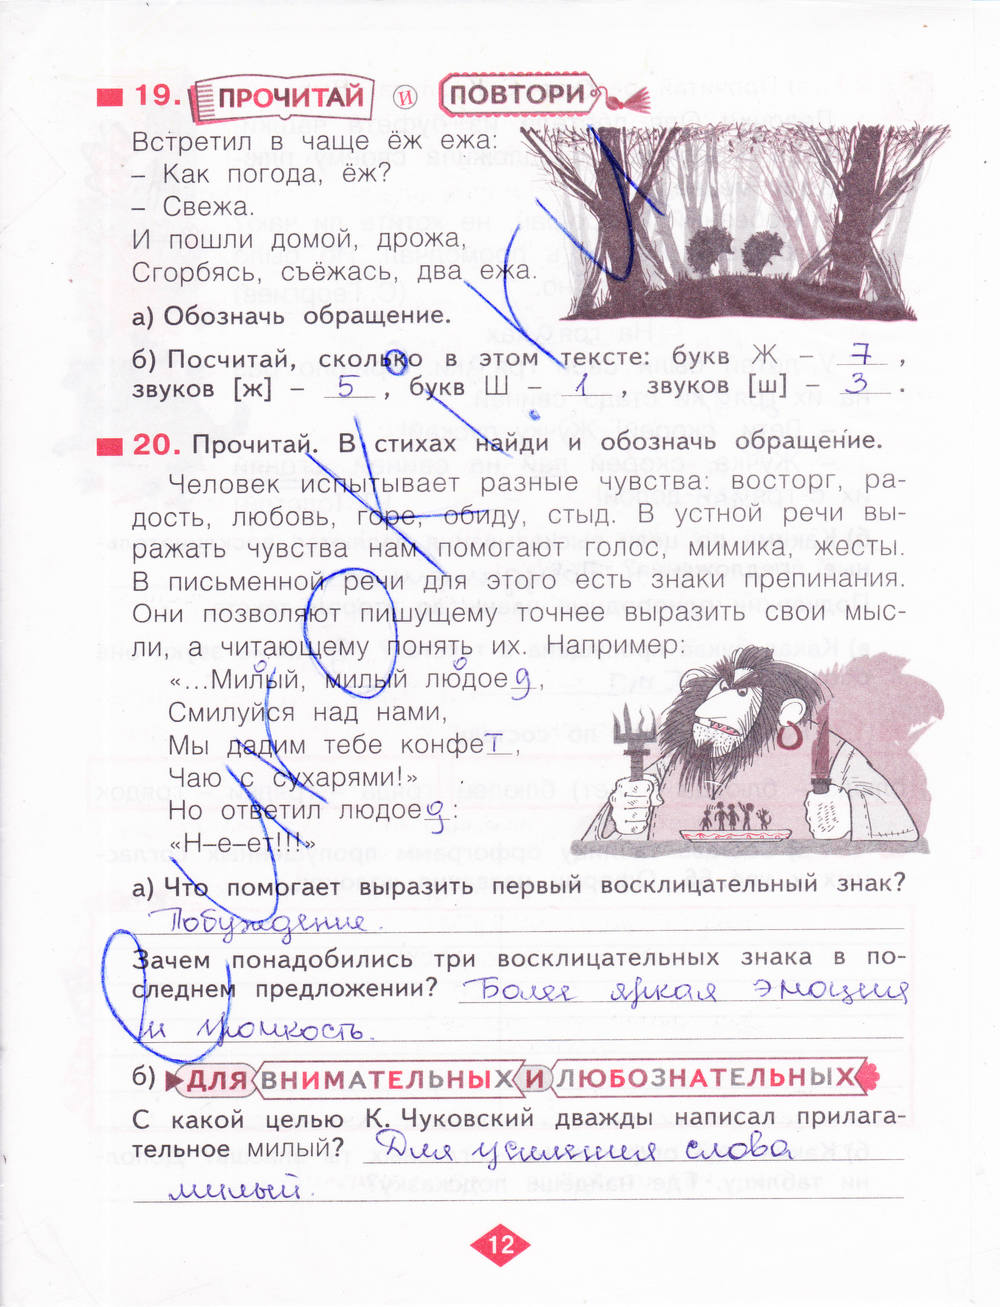 19. ПРОЧИТАЙ И ПОВТОРИ
Встретил в чаще ёж ежа:
– Как погода, ёж?
– Свежа.
И пошли домой, дрожа,
Сгорбясь, съёжась, два ежа.
а) Обозначь обращение.
б) Посчитай, сколько в этом тексте: букв Ж – 7 ,
звуков [ж] – 5 , букв Ш – 1 , звуков [ш] – 3 .
20. Прочитай. В стихах найди и обозначь обращение.
Человек испытывает разные чувства: восторг, ра-
дость, любовь, горе, обиду, стыд. В устной речи вы-
ражать чувства нам помогают голос, мимика, жесты.
В письменной речи для этого есть знаки препинания.
Они позволяют пишущему точнее выразить свои мыс-
ли, а читающему понять их. Например:
«...Милый, милый людоед,
Смилуйся над нами,
Мы дадим тебе конфет,
Чаю с сухарями!»
Но ответил людоед:
«Н–е–ет!!!»
а) Что помогает выразить первый восклицательный знак?
Побуждение.
Зачем понадобились три восклицательных знака в по-
следнем предложении? Более яркая эмоция
и громкость.
б) ДЛЯ ВНИМАТЕЛЬНЫХ И ЛЮБОЗНАТЕЛЬНЫХ
С какой целью К. Чуковский дважды написал прилага-
тельное милый? Для усиления слова
милый.
12